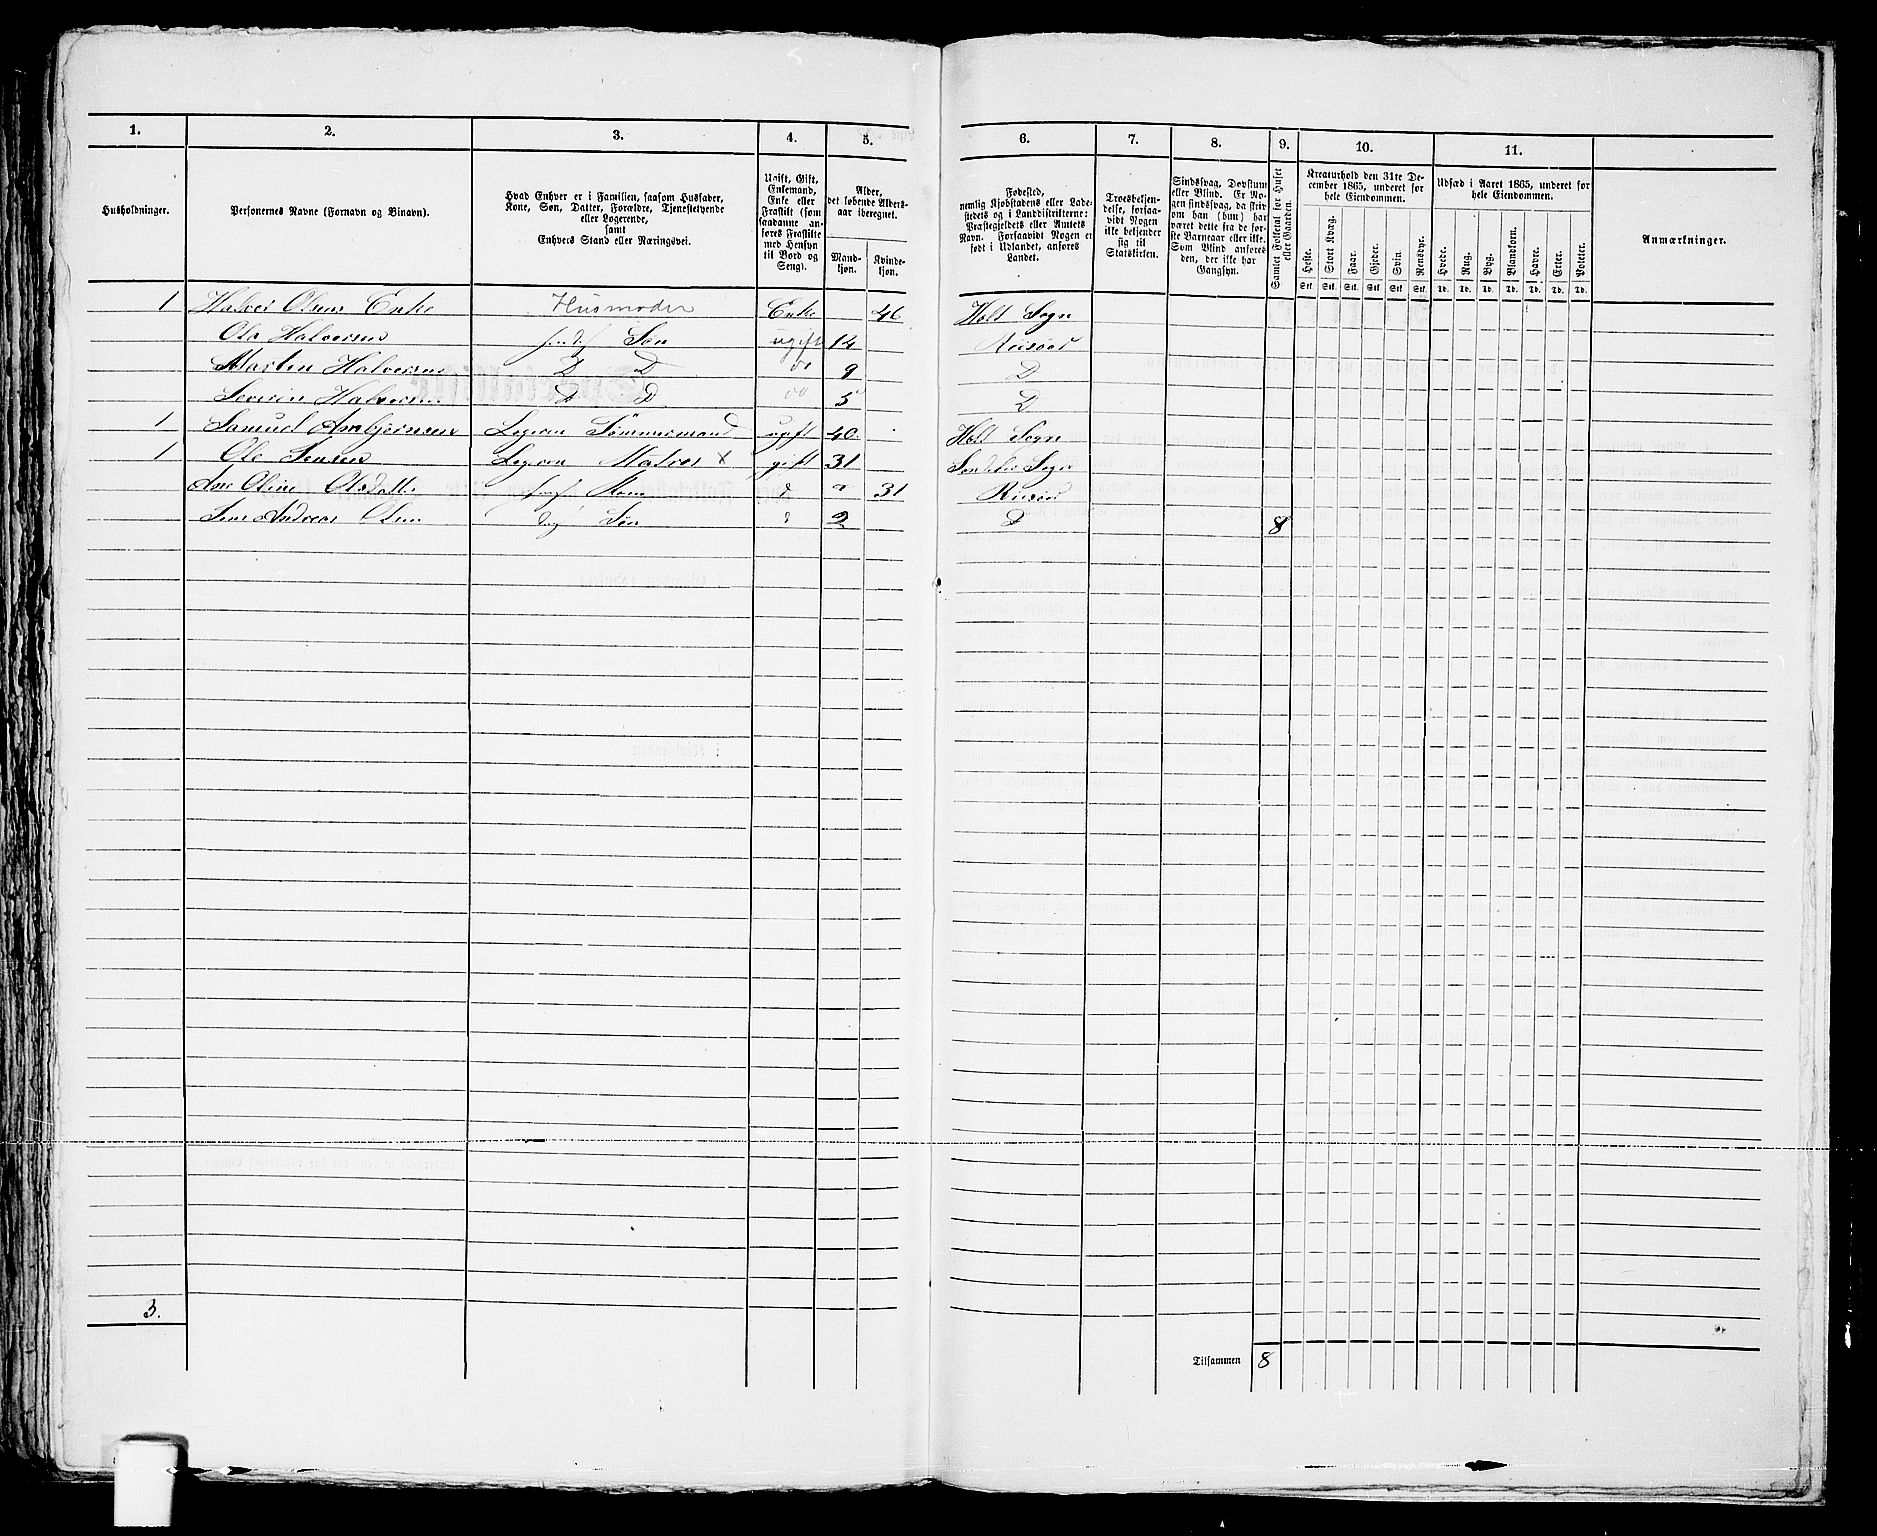 1. 2. 3. 4. 5. 6. 7. 8. 9. 10. 11.
Husholdninger.
Personernes Navne (Fornavn og Binavn).
Hvad Enhver er i Familien, saasom Husfader,
Kone, Søn, Datter, Forældre, Tjenestetyende
eller Logerende,
samt
Enhvers Stand eller Næringsvei.
Ugift, Gift,
Enkemand,
Enke eller
Fraskilt (som
saadanne an-
føres Fraskilte
med Hensyn
til Bord og
Seng).
Alder,
det løbende Alders-
aar iberegnet.
Mand-
kjøn.
Kvinde-
kjøn.
Fødested,
nemlig Kjøbstadens eller Lade-
stedets og i Landdistrikterne:
Præstegjeldets eller Amtets
Navn. Forsaavidt Nogen er
født i Udlandet, anføres
Landet.
Troesbekjen-
delse, forsaa-
vidt Nogen
ikke bekjender
sig til
Statskirken.
Sindssvag, Døvstum
eller Blind. Er No-
gen sindssvag, da skriv
om han (hun) har
været dette fra de før-
ste Barneaar eller ikke.
Som Blind anføres
den, der ikke har
Gangsyn.
Samlet Folketal for Huset
eller Gaarden.
Kreaturhold den 31te De-
cember 1865, underet for
hele Eiendommen.
Heste. Stort Kvæg. Faar. Gjeder. Svin. Rensdyr.
Stk. Stk. Stk. Stk. Stk. Stk.
Udsæd i Aaret 1865, underet for
hele Eiendommen.
Hvede. Rug. Byg. Blandkorn. Havre. Erter. Poteter.
Td. Td. Td. Td. Td. Td. Td.
Anmærkninger.
1 Halvor Olsens Enke Husmoder Enke 46 Holt Sogn
Ole Halvorsen Søn ugift 14 Riisøer
Martin Halvorsen D D do 9 D
Severin Halvorsen D D do 5 D
1 Samuel Ambjørnsen Logeren Tømmermand ugift 40. Holt Sogn
1 Ole Jensen Logeren Matros X gift 31 Sogn
Ane Oline Olsdatter Kone d 31 Riisøer
Jens Andreas Olsen Søn d 2 D 8
3.
Tilsammen 8